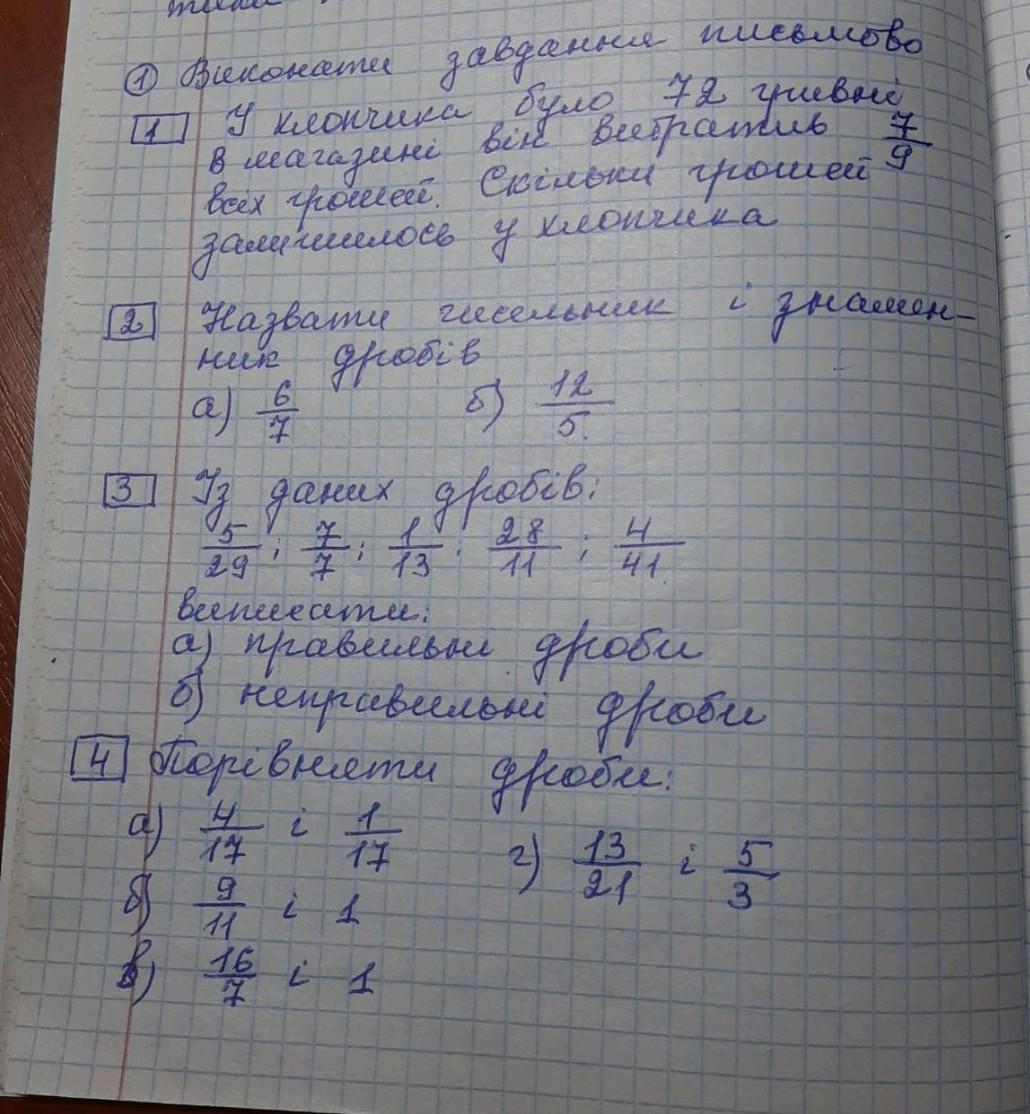 ① Виконати завдання письмово
1 У хлопчика було 72 гривні
В магазині він витратив 7/9
всіх грошей. Скільки грошей
залишилось у хлопчика
2 Назвати чисельник і знамен-
ник дробів
а) 6/7 б) 12/5
3 Із даних дробів:
5/29; 7/7; 1/13; 28/11; 4/41
виписати:
а) правильні дроби
б) неправильні дроби
4 Порівняти дроби:
а) 4/17 і 1/17 г) 13/21 і 5/3
б) 9/11 і 1
в) 16/7 і 1